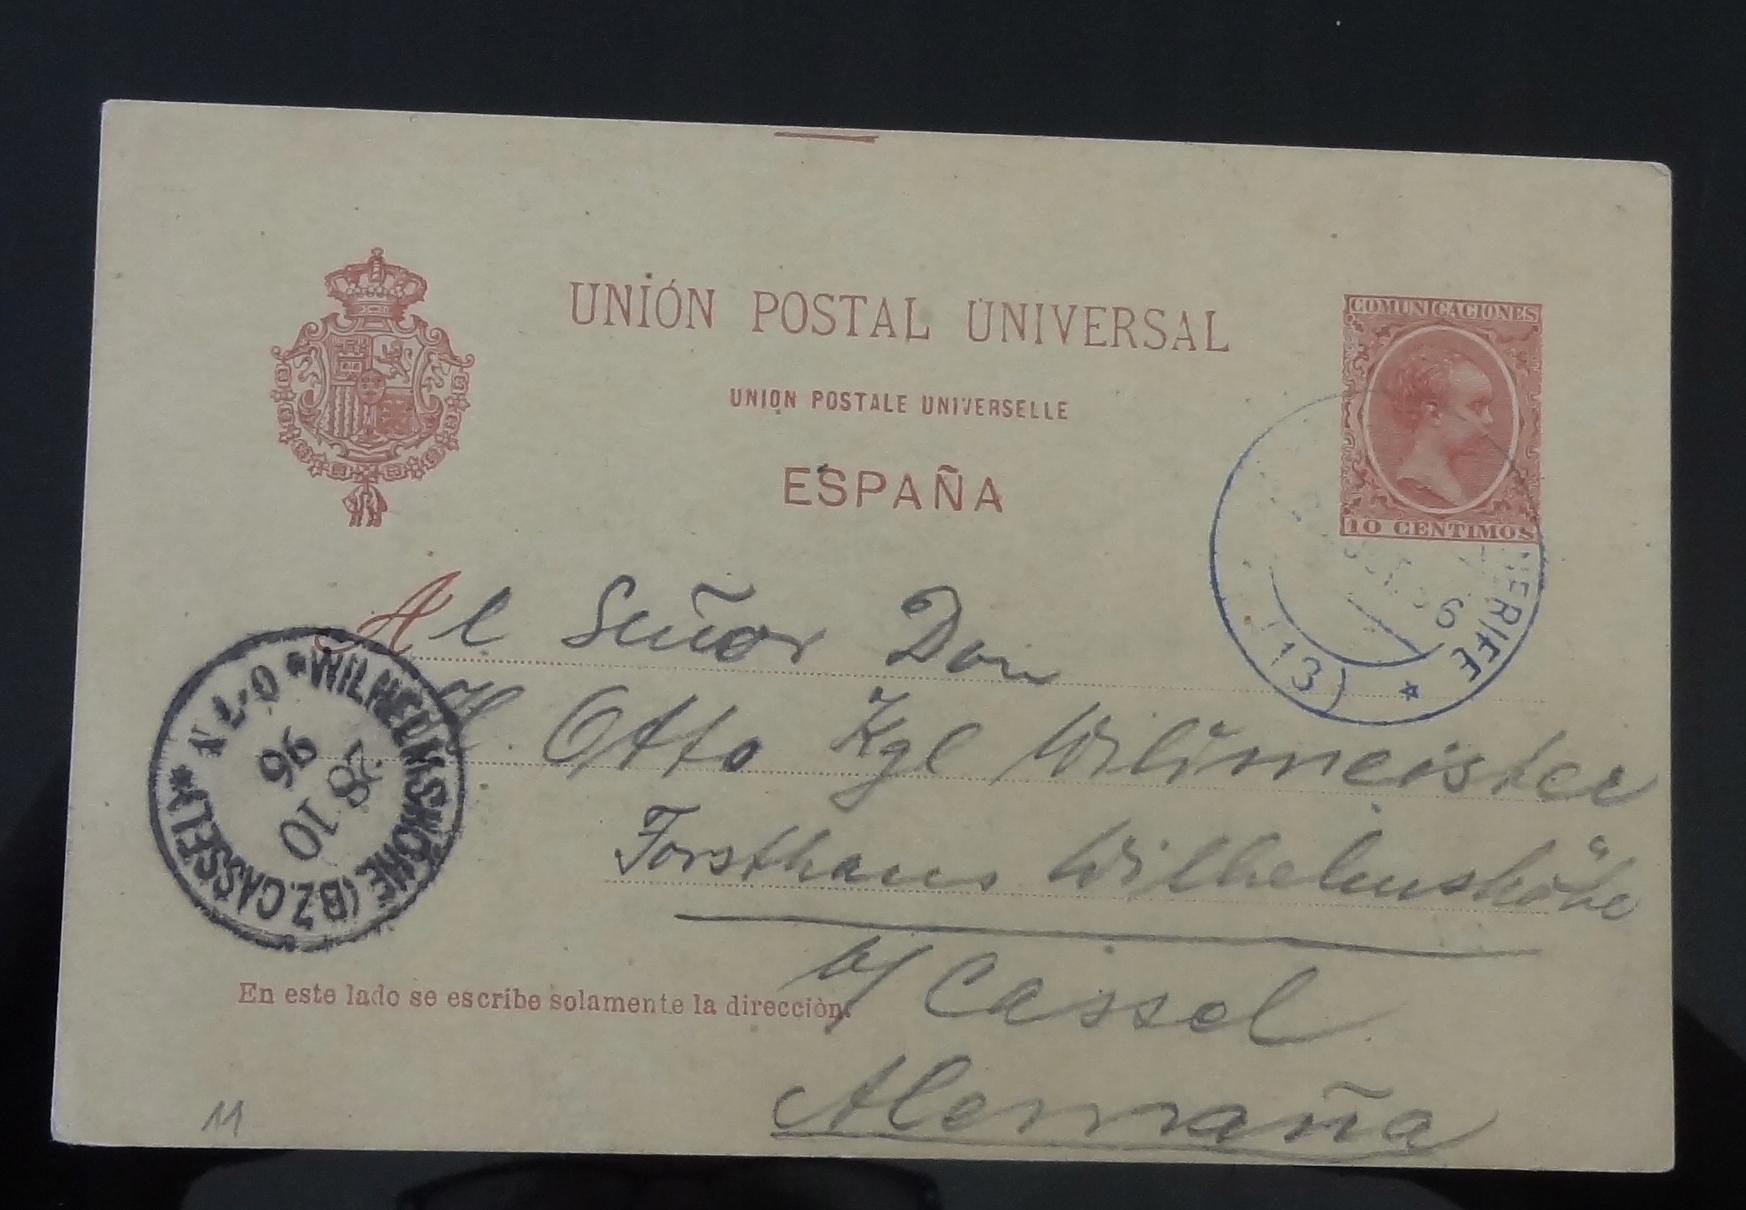 UNIÓN POSTAL UNIVERSAL
UNION POSTALE UNIVERSELLE
ESPAÑA
COMUNICACIONES
10 CENTIMOS
ERIFE
(13)
Al Señor Don
H. Otto Kgl Wildmeister
Forsthaus Wilhelmshöhe
b/ Cassel
Alemaña
WILHELMSHÖHE (BZ. CASSEL)
28
10
96
7-8 N
En este lado se escribe solamente la dirección.
11